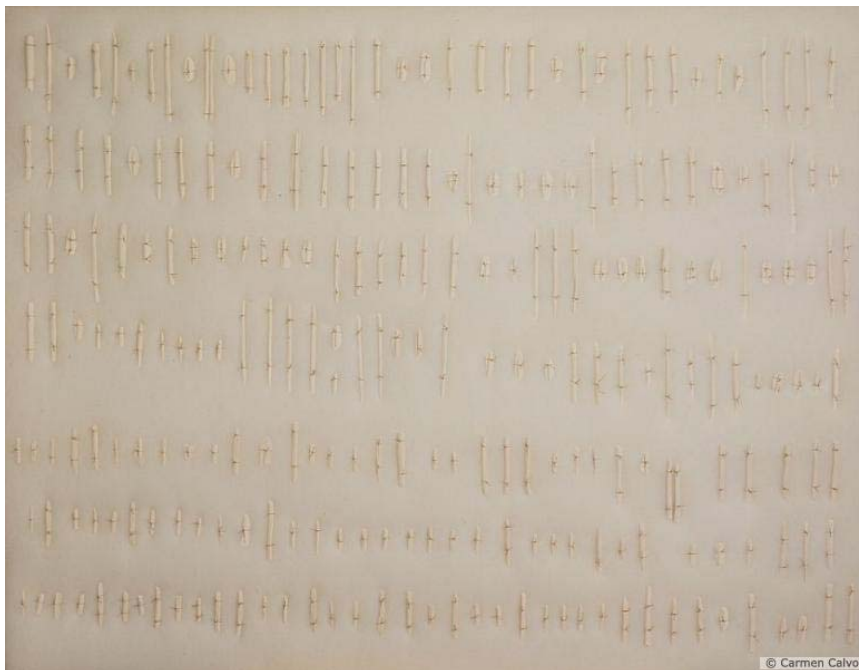 © Carmen Calvo